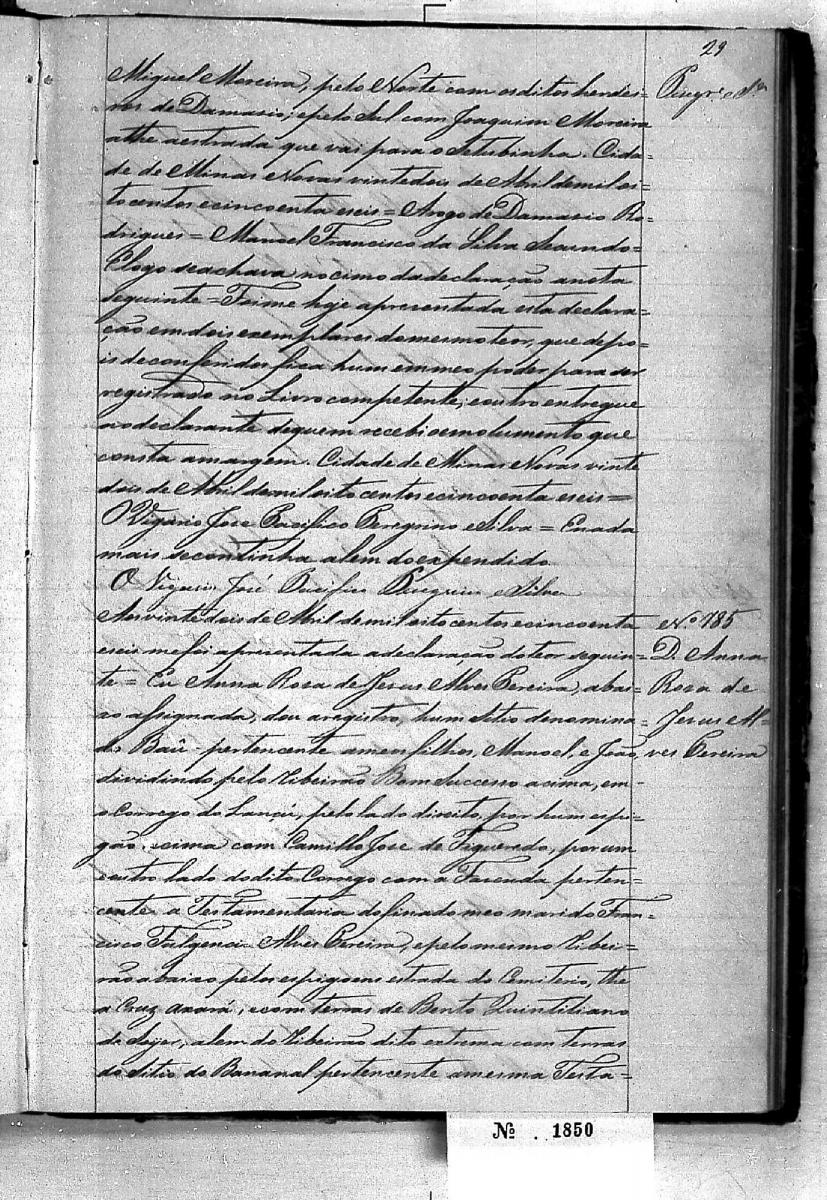 29
Miguel Moreira, pelo Norte com os ditos herdei=
ros de Damasio, e pelo Sul com Joaquim Moreira
athe a estrada que vai para o Setubinha. Cida=
de de Minas Novas vinte dois de Abril de mil oi=
to centos e cincoenta e seis = Arogo de Damasio Ro=
drigues = Manoel Francisco da Silva Secundo =
E logo se achava no cimo da declaração a nota
seguinte = Foi me hoje apresentada esta declara=
ção em dois exemplares do mesmo teor, que depo=
is de conferidos fica hum em meo poder para ser
registrado no Livro competente, e outro entregue
ao declarante de quem recebi o emolumento que
consta a margem. Cidade de Minas Novas vinte
dois de Abril de mil oito centos e cincoenta e seis =
O Vigario José Pacifico Peregrino e Silva = E nada
mais se continha alem do expendido
O Vigario José Pacifico Peregrino e Silva
Aos vinte dois de Abril de mil oito centos e cincoenta
e seis me foi apresentada a declaração do teor seguin=
te = Eu Anna Rosa de Jesus Alves Pereira, abai
xo assignada, dou a registro, hum Sitio denomina=
do Baú - pertencente a meus filhos, Manoel, e João,
dividindo pelo Ribeirão Bom Successo acima, em=
o Corrego do Lançú, pelo lado direito, por hum espi=
gão, acima com Camillo José de Figueredo, por um
e outro lado do dito Corrego com a Fazenda perten=
cente a Testamentaria do finado meo marido Fran=
cisco Fulgencio Alves Pereira, e pelo mesmo Ribei=
rão abaixo pelos espigoens estrada do Cemiterio, the
a Cruz, e com terras de Bento Quintiliano
de, alem do Ribeirão dito extrema com terras
do Sitio do Bananal pertencente a mesma Testa=
Peregr.º e S.ª
N.º 185
D. Anna
Rosa de
Jesus Al=
ves Pereira
Nº . 1850